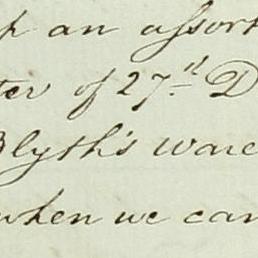 p an assort
ter of 27st D
Blyth's ware
when we can